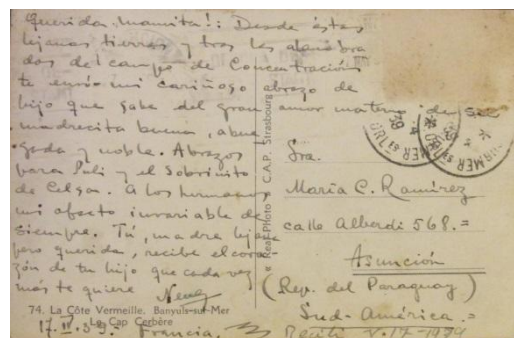 Querida mamita!: Desde éstas
lejanas tierras y tras las alambra
dos del campo de Concentración
te envío mi cariñoso abrazo de
hijo que sabe del gran amor materno de su
madrecita buena, abne
gada y noble. Abrazos
para Pili y el Sobrinito
de Celga. A los hermanos
mi afecto invariable de
siempre. Tú, madre lejana
pero querida, recibe el cora
zón de tu hijo que cada vez
más te quiere
74. La Côte Vermeille. Banyuls-sur-Mer
Le Cap Cerbère
17.IV.39. Francia.
« Real-Photo » C.A.P. Strasbourg
Sra.
María C. Ramírez
calle Alberdi 568.=
Asunción
(Rep. del Paraguay)
Sud-América.=
Recibí V-17-1939